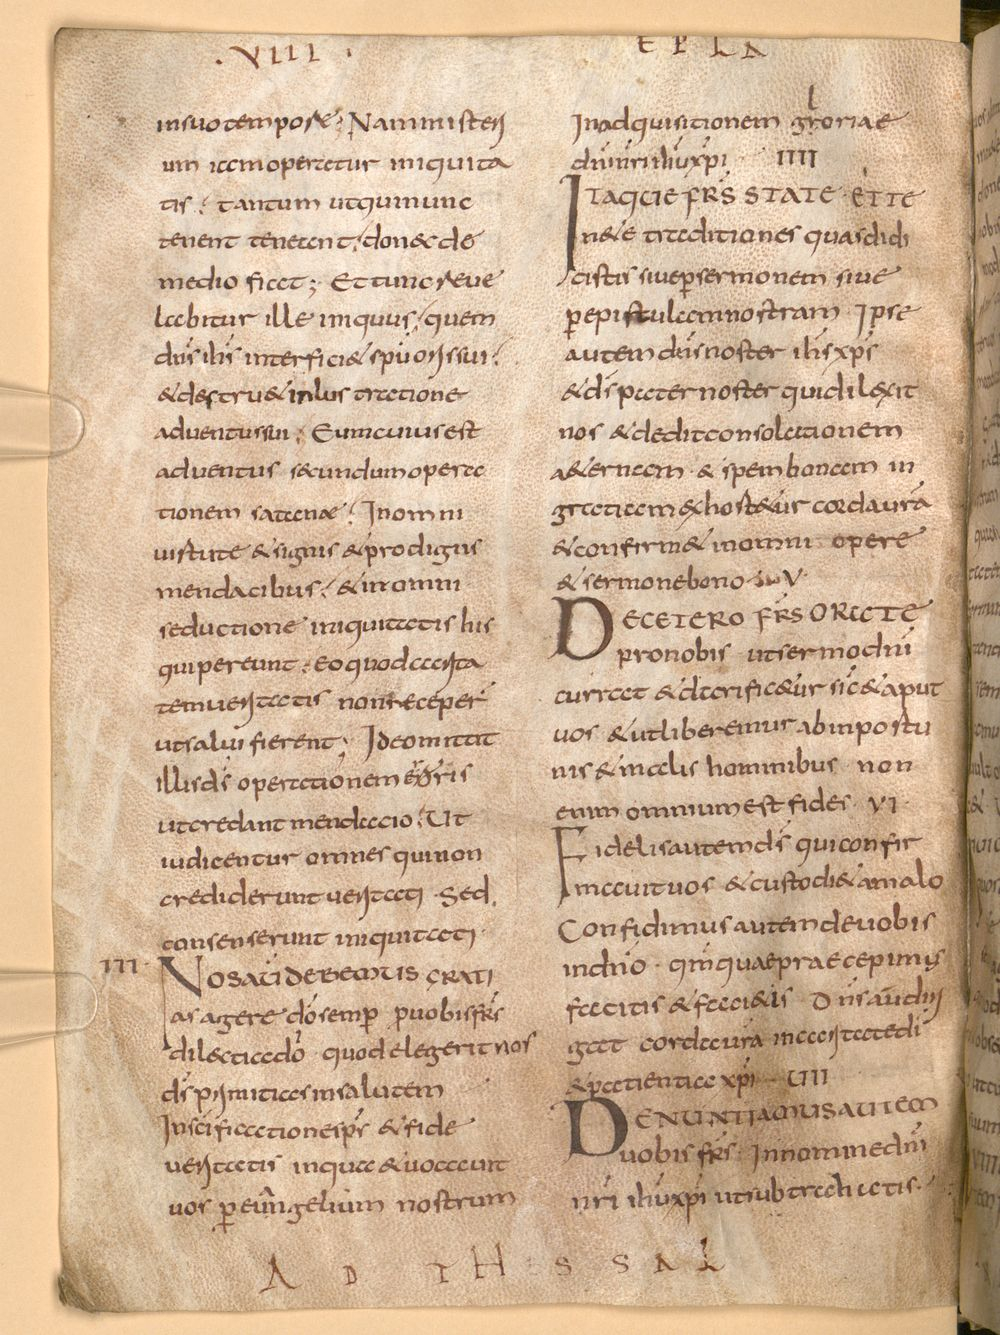 · VIII ·
EPLA
in suo tempore; Nam misteri
um iam operatur iniquita
tis; tantum ut qui nunc
tenent teneant; donec de
medio fiat; Et tunc reve
labitur ille iniquus; quem
dns ihs interficiet spu oris sui;
& destruet inlustratione
adventus sui; Eum cuius est
adventus secundum opera
tionem satanae; In omni
virtute & signis & prodigiis
mendacibus; & in omni
seductione iniquitatis his
qui pereunt; eo quod carita
tem veritatis non receper
ut salvi fierent; Ideo mittit
illis ds operationem erroris
ut credant mendacio; Ut
iudicentur omnes qui non
crediderunt veritati · Sed
consenserunt iniquitati ·
III · NOS AUT DEBEMUS GRATI
as agere do semp p vobis frs
dilecti a do · quod elegerit nos
ds primitias in salutem
In scificatione sps & fide
veritatis in qua & vocavit
vos p evangelium nostrum
In adquisitionem gloriae
dni nri ihu xpi IIII
ITAQUE FRS STATE · ET TE
nete traditiones quas didi
cistis sive p sermonem sive
p epistulam nostram · Ipse
autem dns noster ihs xps
& ds pater noster qui dilexit
nos & dedit consolationem
aeternam & spem bonam in
gratiam exhortetur corda vra
& confirmet in omni opere
& sermone bono · V ·
DE CETERO FRS ORATE
pro nobis ut sermo dni
currat & clarificetur sic & aput
vos & ut liberemur ab inportu
nis & malis hominibus non
enim omnium est fides · VI ·
Fidelis autem ds qui confir
mavit vos & custodiet a malo
Confidimus autem de vobis
in dno · qm quae praecepimus
facitis & facietis Dns aut diri
gat corda vra in caritate di
& patientia xpi VII
DENUNTIAMUS AUTEM
vobis frs · In nomine dni
nri ihu xpi ut subtrahatis ·
AD THSSAL